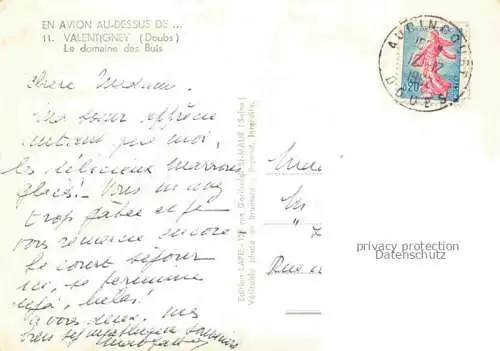 EN AVION AU-DESSUS DE ...
11. VALENTIGNEY (Doubs)
Le domaine des Buis
Chère Madame,
Ma soeur apprécie
autant que moi,
les délicieux marrons
glacés! Vous m'avez
trop gâtée et je
vous remercie encore
Le court séjour
ici, se termine
déjà, hélas!
à vous deux, mes
très sympathiques souvenirs
Edition LAPIE
Véritable photo au bromure
AUDINCOURT
DOUBS
0,20
privacy protection
Datenschutz